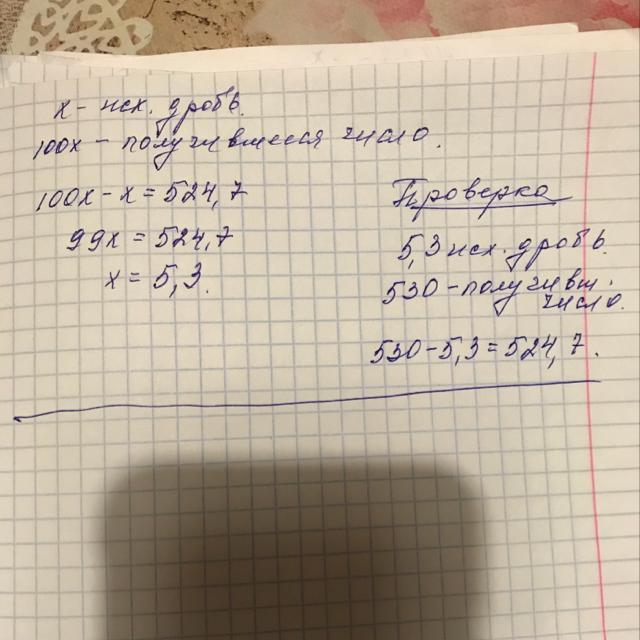 x - исх. дробь.
100x - получившееся число.
100x - x = 524,7
99x = 524,7
x = 5,3.
Проверка
5,3 исх. дробь.
530 - получивш.
число.
530 - 5,3 = 524,7.